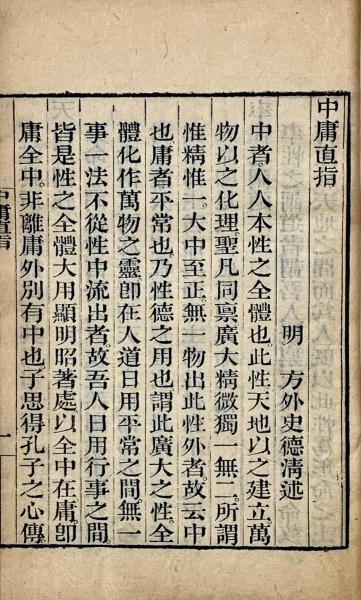 中庸直指
明　方外史德清述
中者人人本性之全體也。此性天地以之建立。萬
物以之化理。聖凡同稟。廣大精微。獨一無二。所謂
惟精惟一。大中至正。無一物出此性外者。故云中
也。庸者平常也。乃性德之用也。謂此廣大之性。全
體化作萬物之靈。卽在人道日用平常之間。無一
事一法不從性中流出者。故吾人日用行事之間。
皆是性之全體大用顯明昭著處。以全中在庸。卽
庸全中。非離庸外別有中也。子思得孔子之心傳。
中庸直指
一